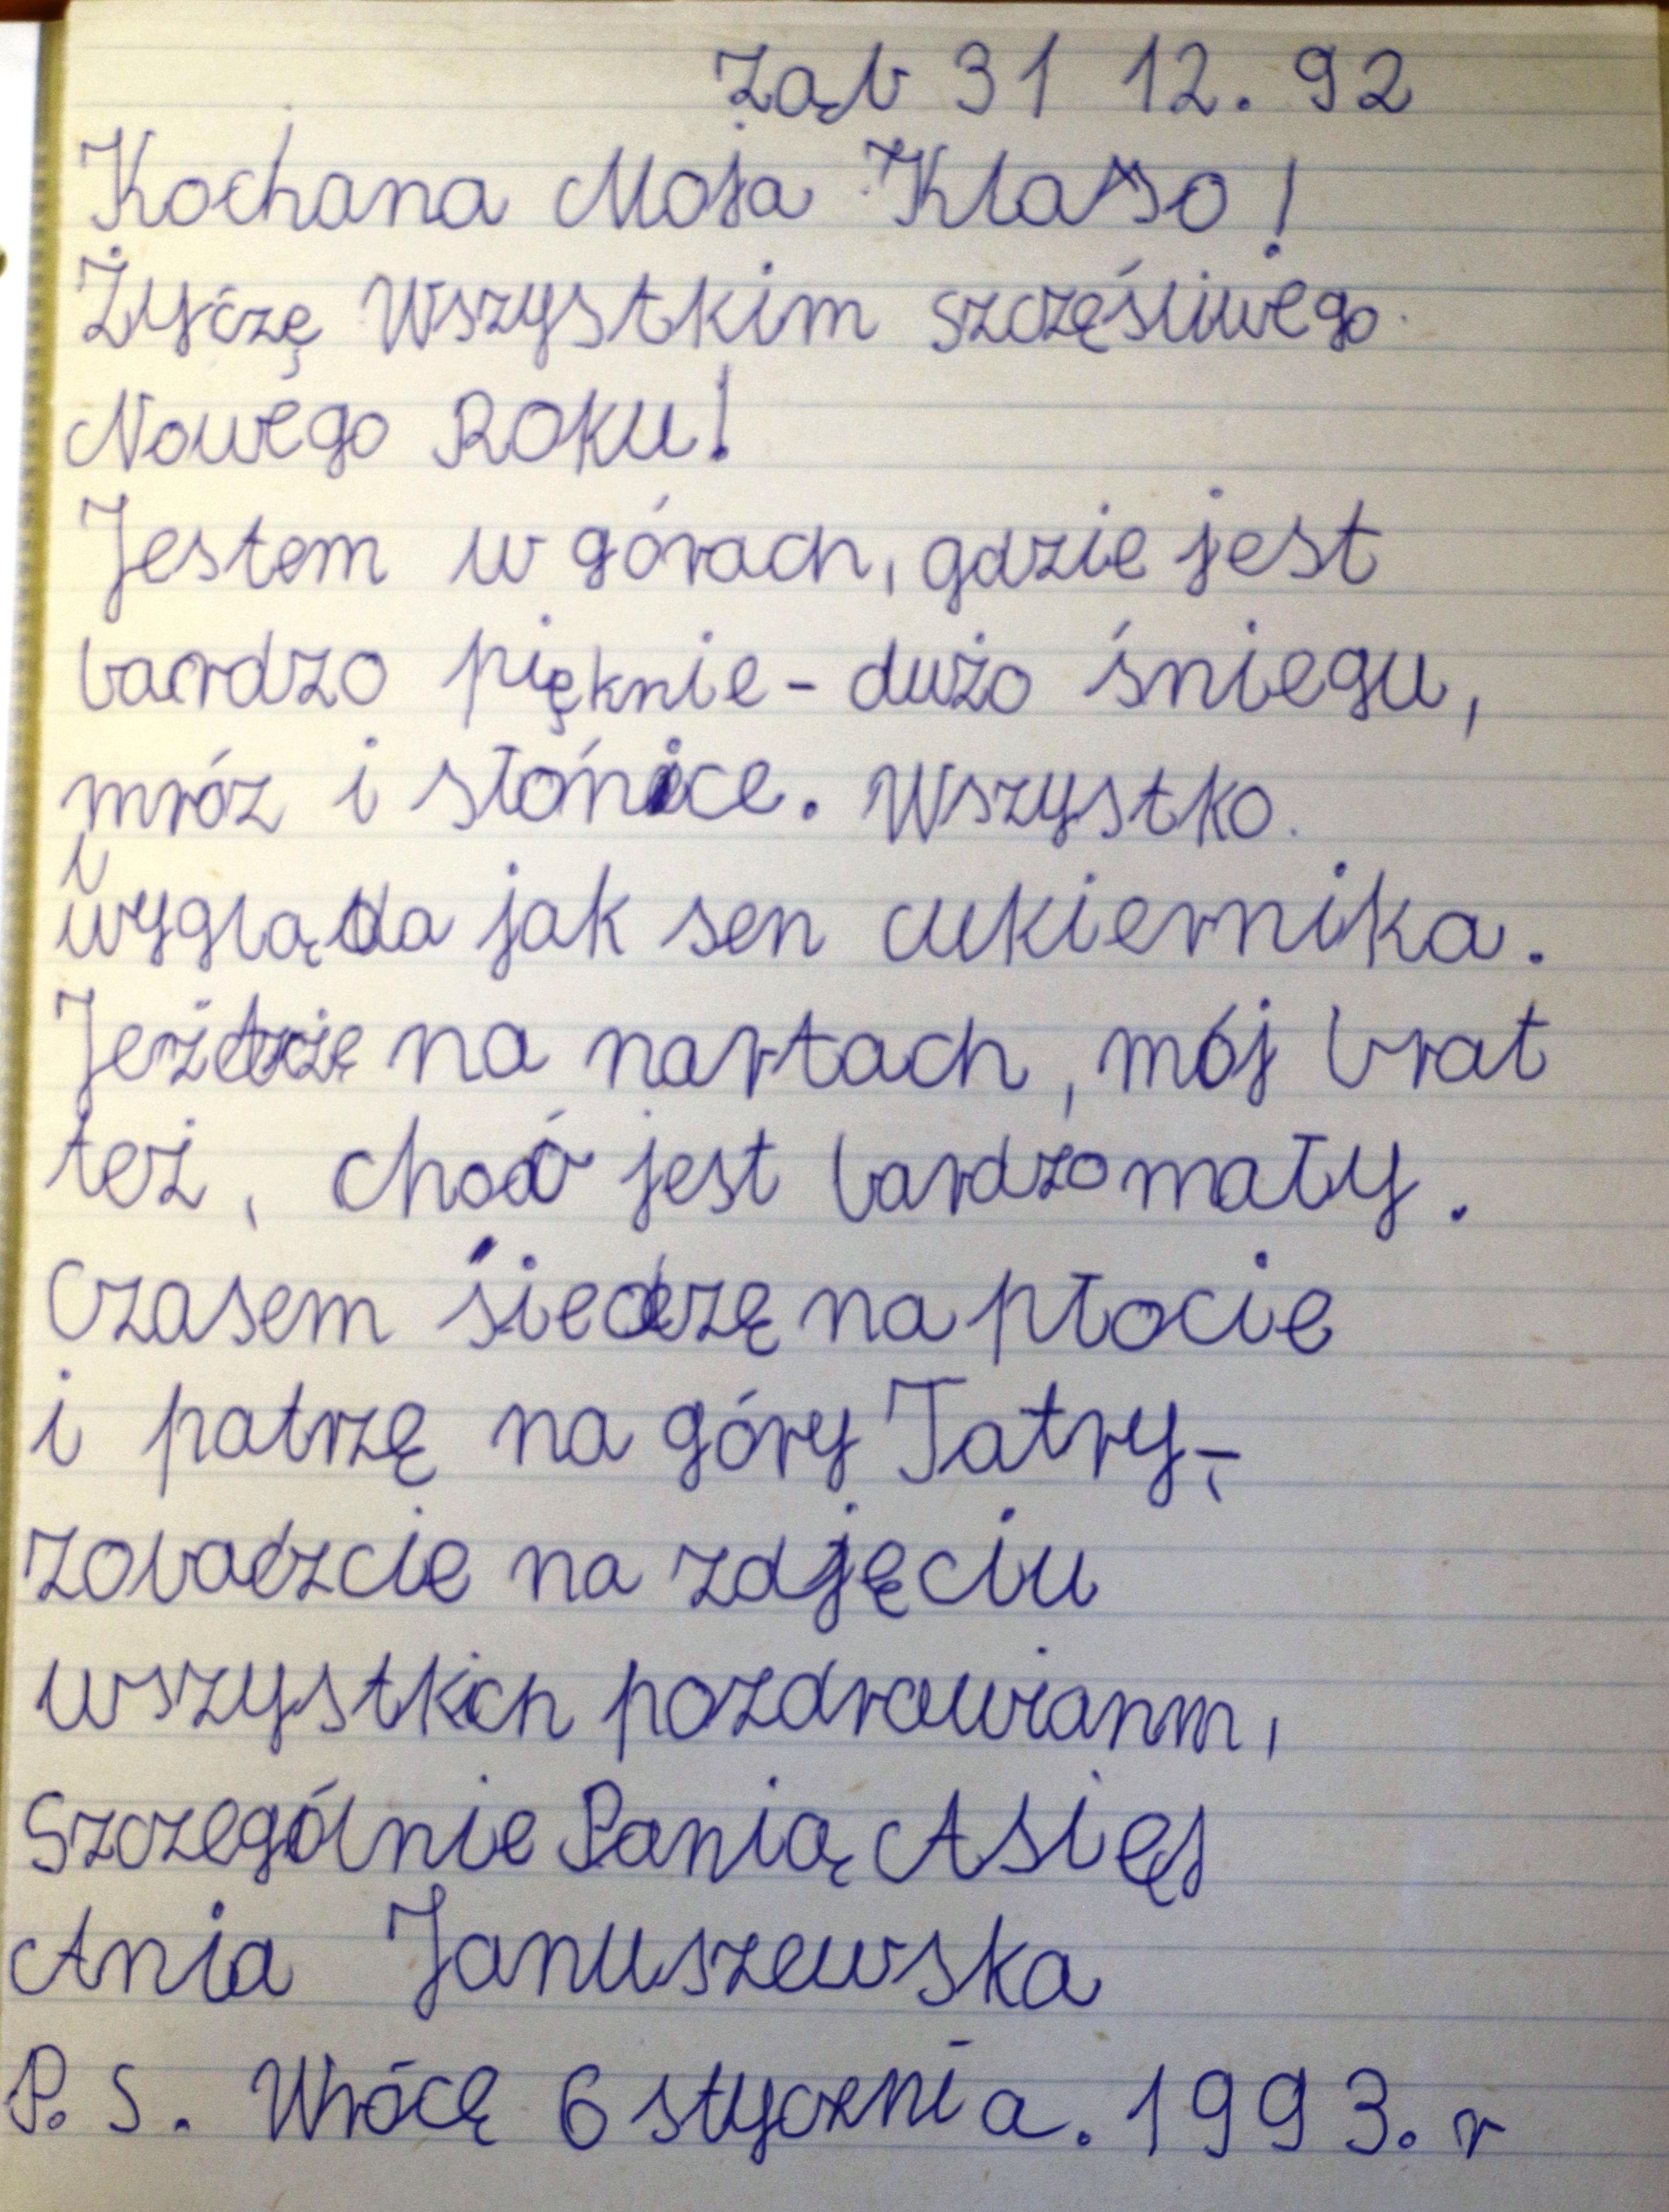 Ząb 31 12. 92
Kochana Moja Klaso!
Życzę Wszystkim szczęśliwego
Nowego Roku!
Jestem w górach, gdzie jest
bardzo pięknie - dużo śniegu,
mróz i słońce. Wszystko
wygląda jak sen cukiernika.
Jeżdżę na nartach, mój brat
też, choć jest bardzo mały.
Czasem siedzę na płocie
i patrzę na góry Tatry,-
zobaczcie na zdjęciu
wszystkich pozdrawiamm,
Szczególnie Panią Asię
Ania Januszewska
P. S. Wrócę 6 stycznia. 1993. r